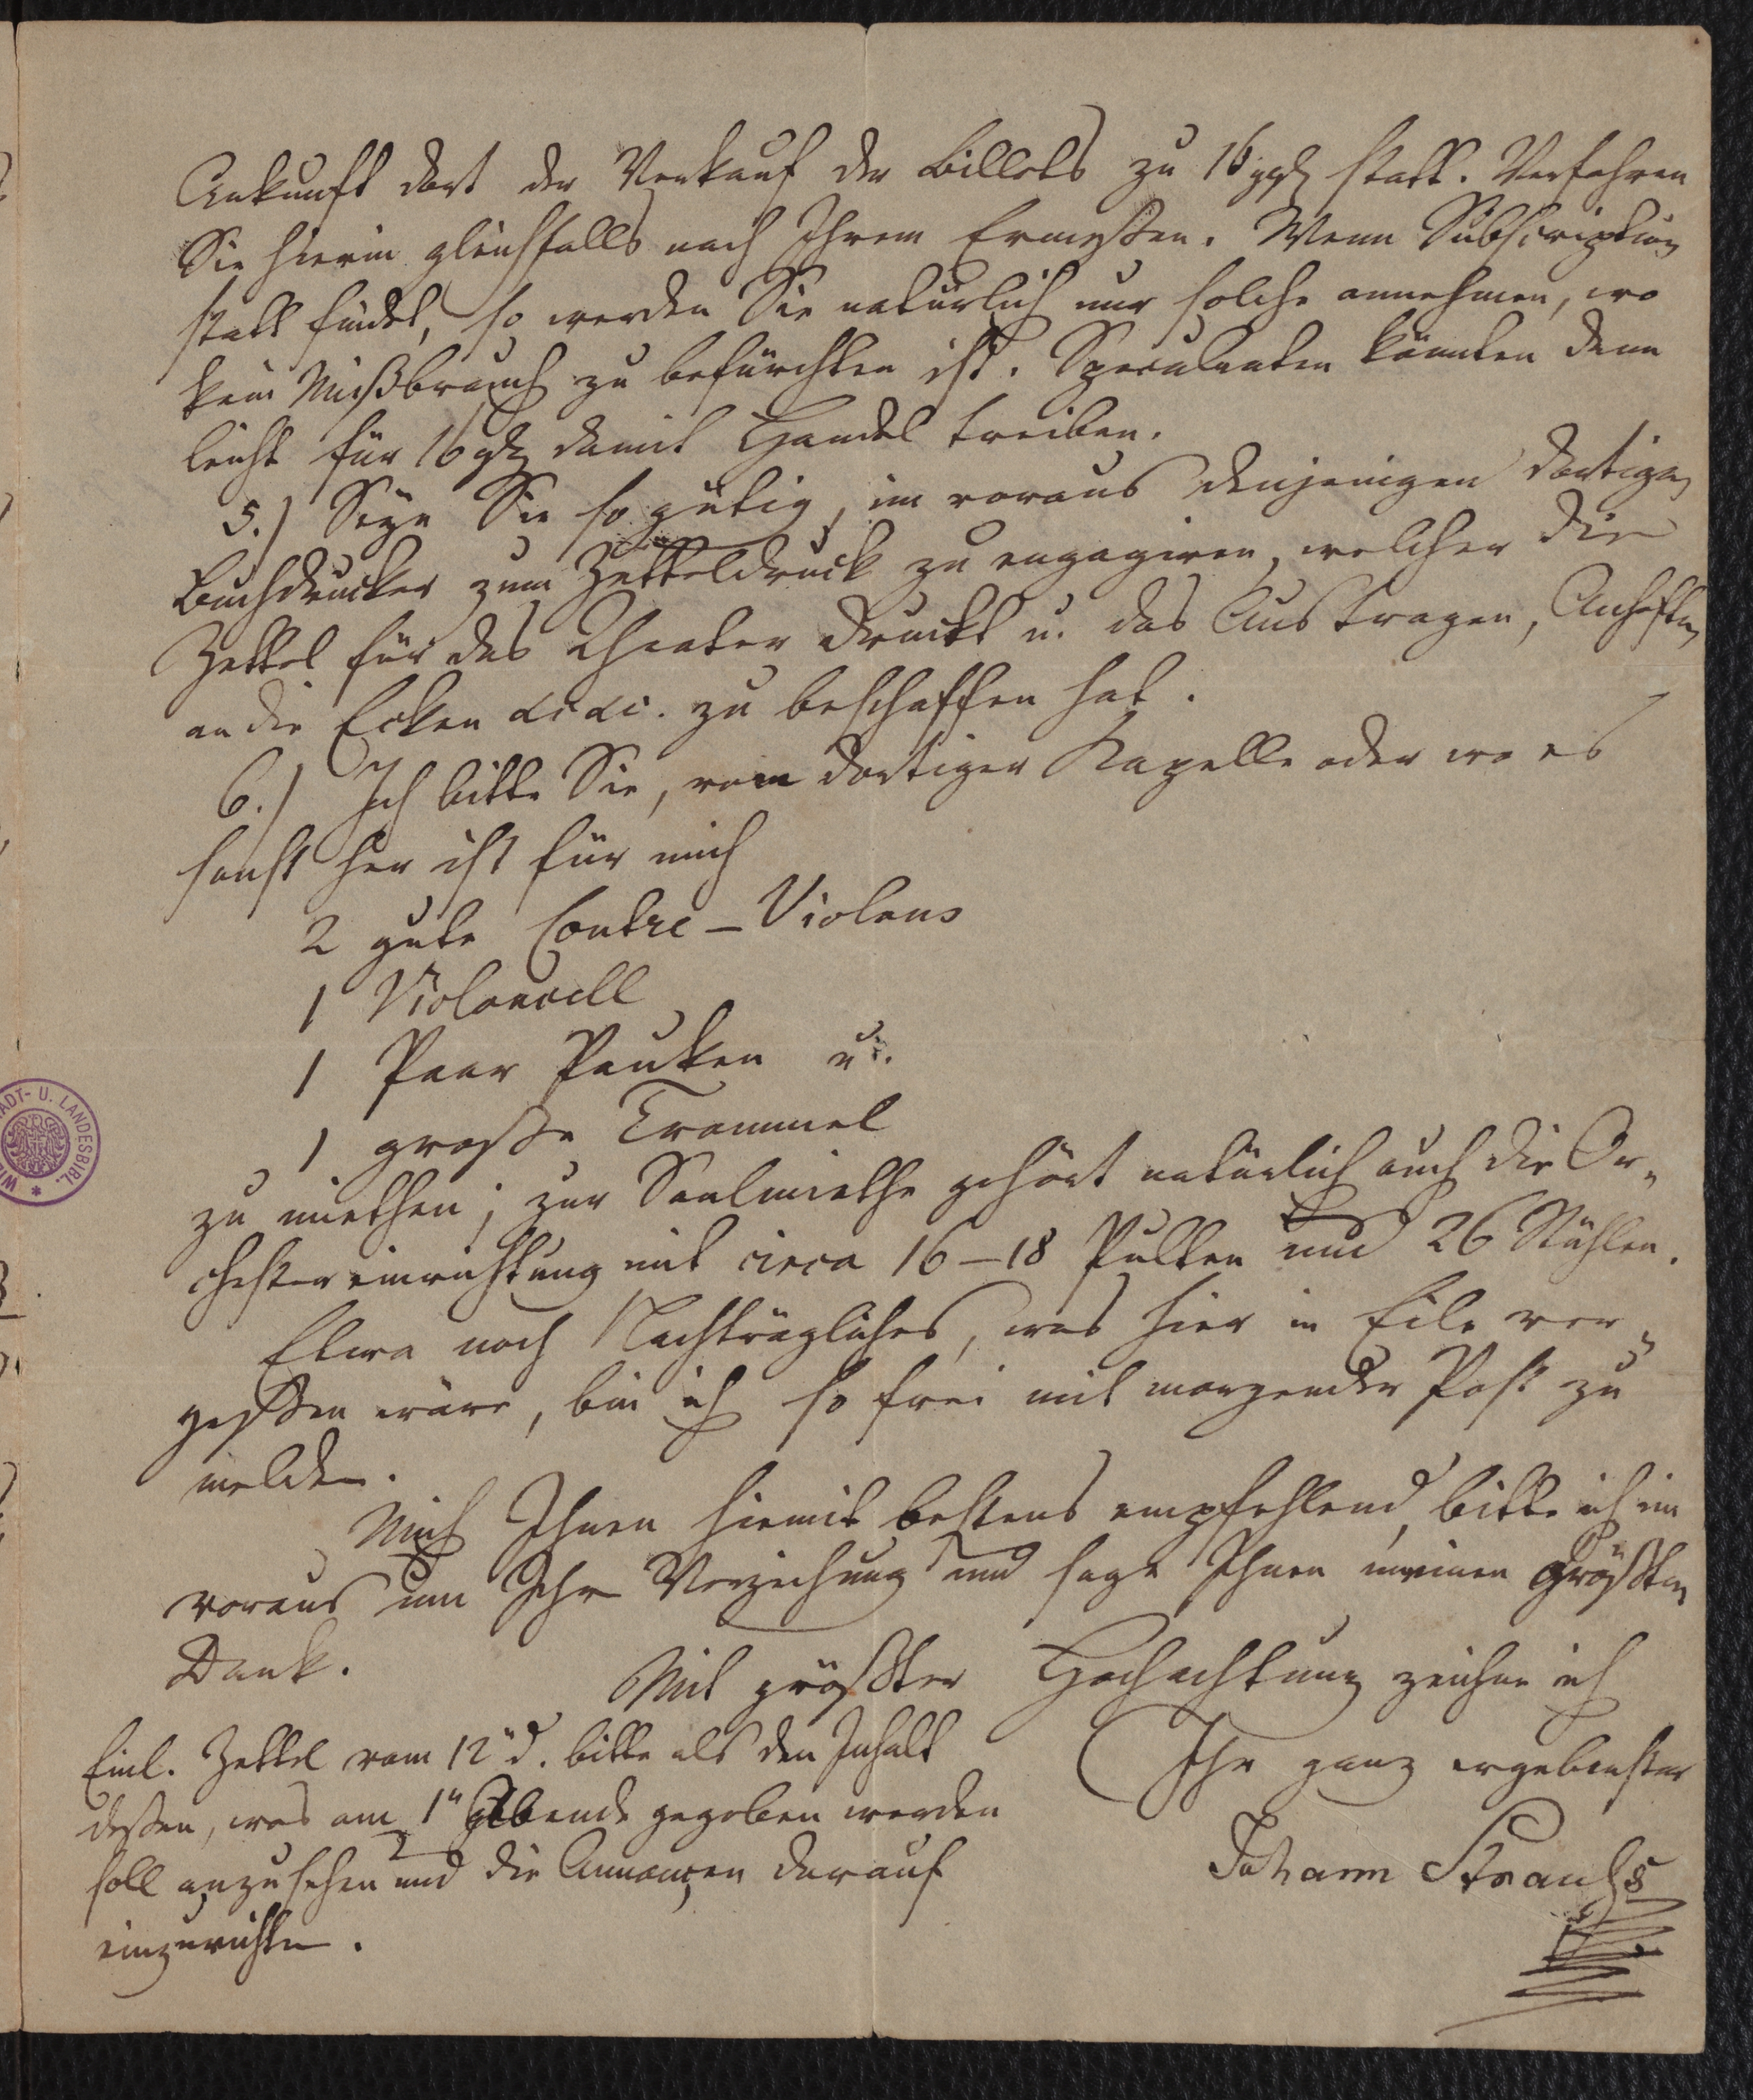 Ankunft dort der Verkauf der Billets zu 16 ggr statt. Verfahren
Sie hierin gleichfalls nach Ihrem Ermeßen. Wenn Subscription
statt findet, so werden Sie natürlich nur solche annehmen, wo
kein Mißbrauch zu befürchten ist. Speculanten könnten dann
leicht für 16 gr damit Handel treiben.
5.) Seyn Sie so gütig, im voraus denjenigen dortigen
Buchdrucker zum Zetteldruck zu engagiren, welcher die
Zettel für das Theater druckt u. das Austragen, Anheften
an die Ecken &c &c. zu beschaffen hat.
6.) Ich bitte Sie, von dortiger Kapelle oder wo es
sonst her ist für mich
2 gute Contre-Violons
1 Violoncell
1 Paar Pauken u.
1 große Trommel
zu miethen; zur Saalmiethe gehört natürlich auch die Or„
chestereinrichtung mit circa 16–18 Pulten und 26 Stühlen.
Etwa noch Nachträgliches, was hier in Eile ver„
geßen wäre, bin ich so frei mit morgender Post zu
melden.
Mich Ihnen hiemit bestens empfehlend, bitte ich im
voraus um Ihre Verzeihung und sage Ihnen meinen größten
Dank.
Mit größter Hochachtung zeichne ich
Ihr ganz ergebenster
Johann Strauß
Einl. Zettel vom 12" d. bitte als den Inhalt
deßen, was am 1" Abende gegeben werden
soll anzusehen und die Annonçen darauf
einzurichten.
ADT- U. LANDESBIBL. * WIE